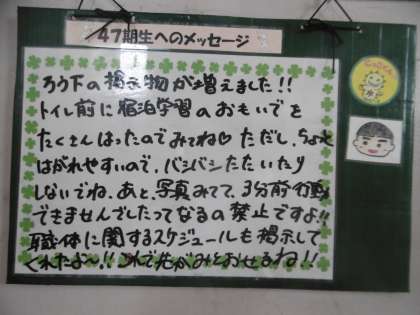 47期生へのメッセージ
ろう下の掲示物が増えました!!
トイレ前に宿泊学習のおもいでを
たくさんはったのでみてね♡ ただし、ちょっと
はがれやすいので、バシバシたたいたり
しないでね。あと、写真みてて、3分前行動
できませんでしたってなるの禁止ですよ!!
職体に関するスケジュールも掲示して
くれたよ〜!! これで先がみとおせるね!!